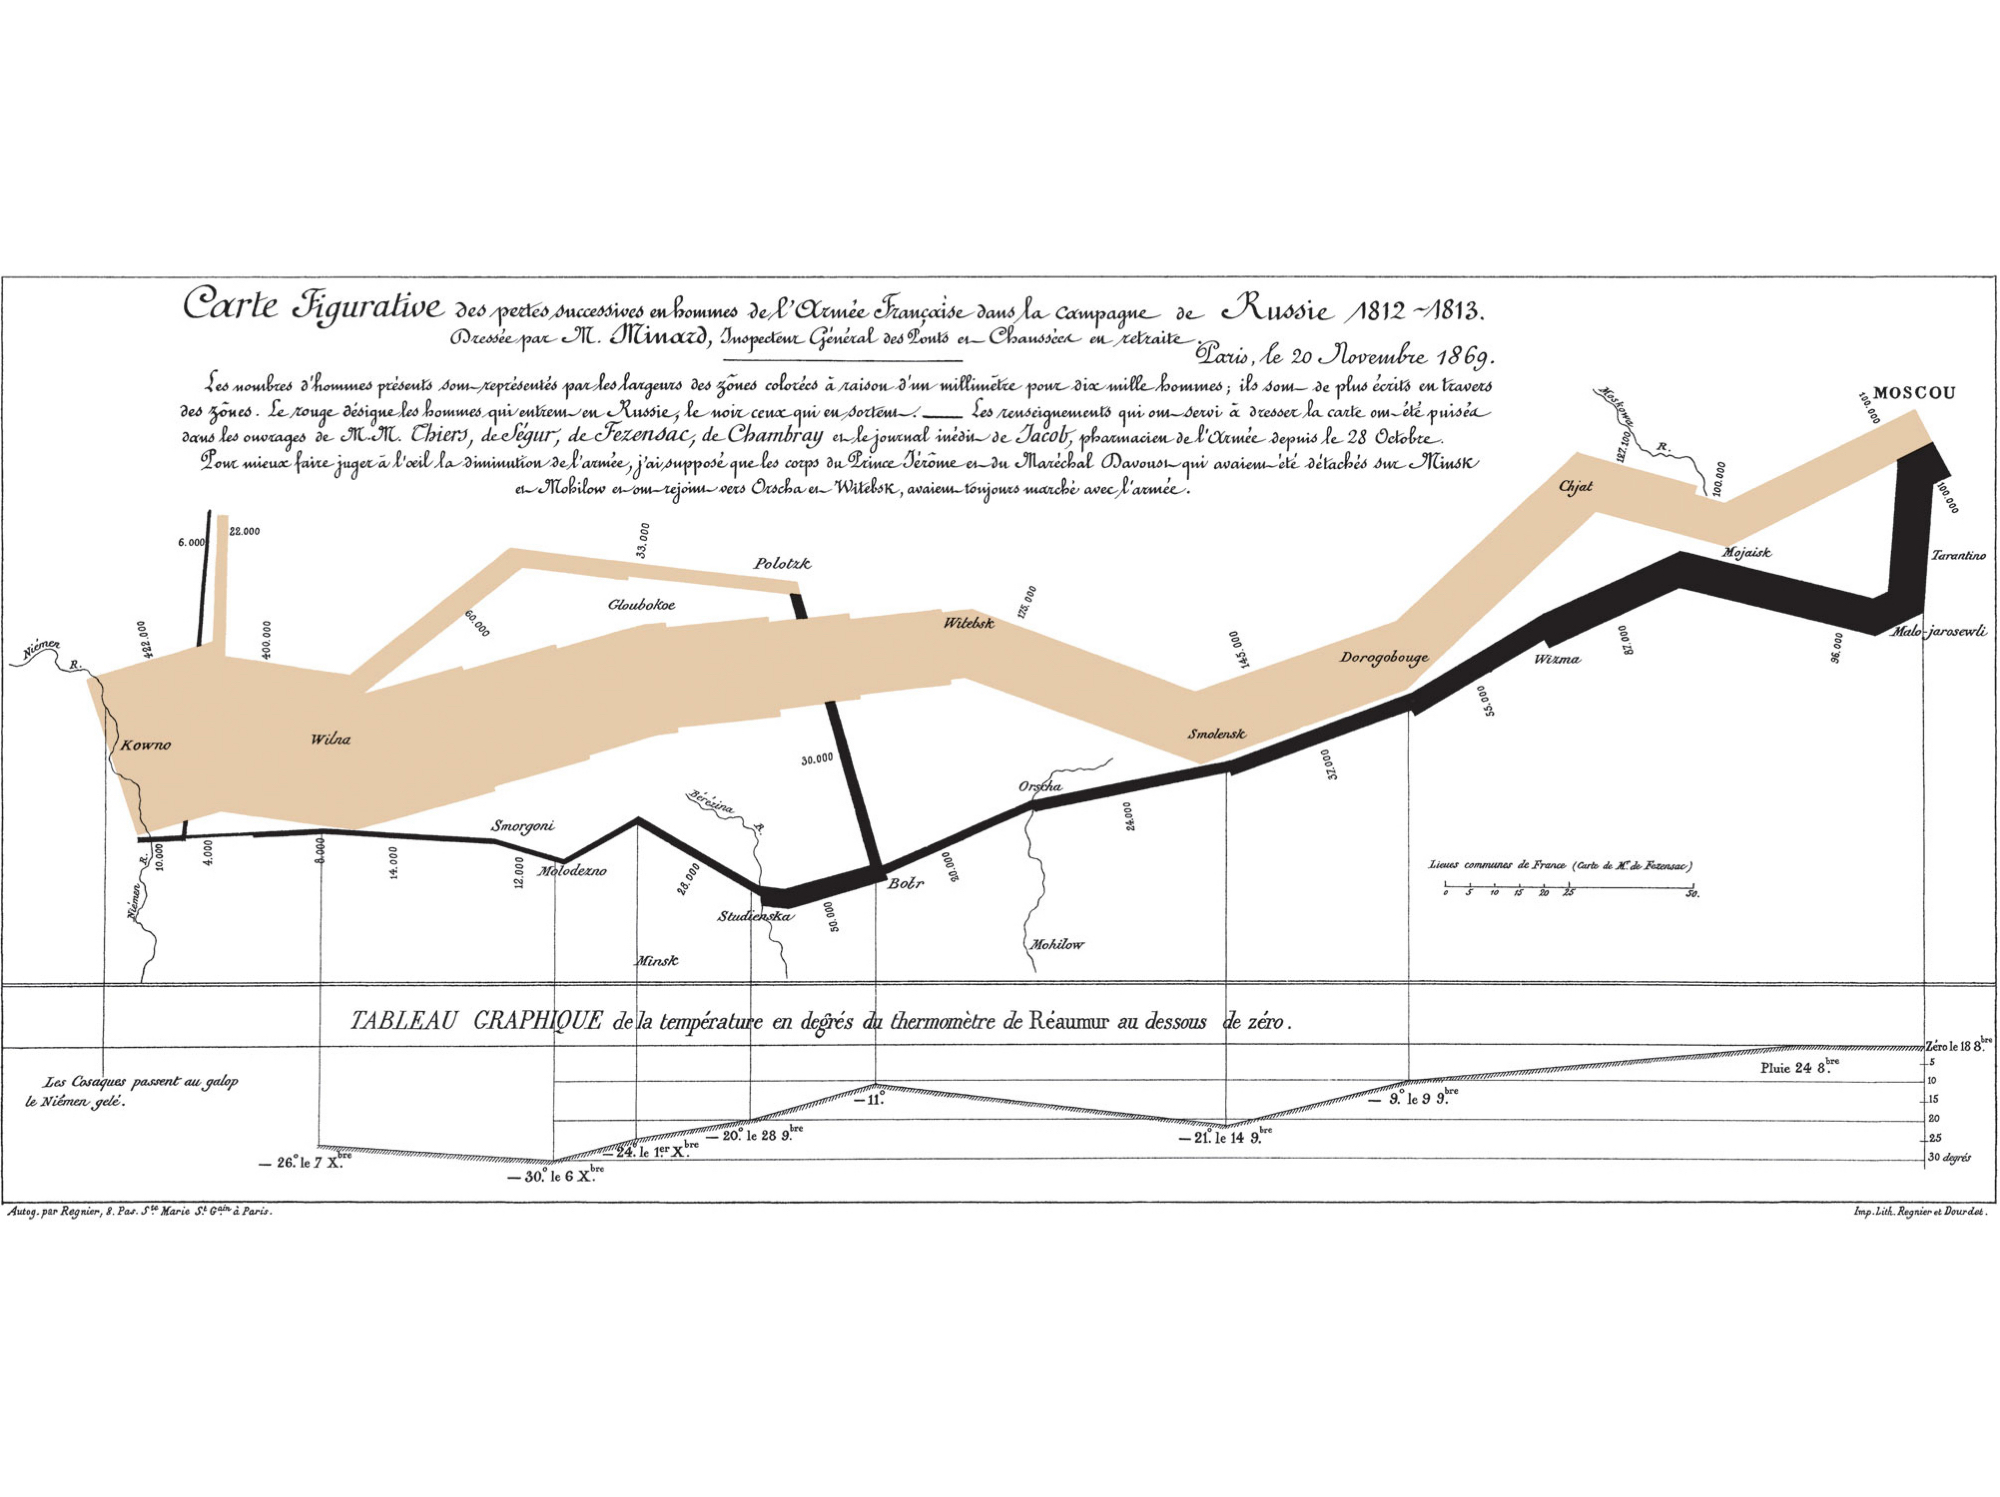 Carte Figurative des pertes successives en hommes de l'Armée Française dans la campagne de Russie 1812~1813.
Dressée par M. Minard, Inspecteur Général des Ponts et Chaussées en retraite.
Paris, le 20 Novembre 1869.
Les nombres d'hommes présents sont représentés par les largeurs des zônes colorées à raison d'un millimètre pour dix mille hommes; ils sont de plus écrits en travers
des zônes. Le rouge désigne les hommes qui entrent en Russie, le noir ceux qui en sortent. — Les renseignements qui ont servi à dresser la carte ont été puisés
dans les ouvrages de M.M. Thiers, de Ségur, de Fezensac, de Chambray et le journal inédit de Jacob, pharmacien de l'Armée depuis le 28 Octobre.
Pour mieux faire juger à l'œil la diminution de l'armée, j'ai supposé que les corps du Prince Jérôme et du Maréchal Davoust qui avaient été détachés sur Minsk
et Mohilow et ont rejoint vers Orscha et Witebsk, avaient toujours marché avec l'armée.
MOSCOU
100.000
Moskowa R.
127.100
100.000
Chjat
100.000
Mojaisk
Tarantino
Malo-jarosewli
6.000
22.000
33.000
Polotzk
Gloubokoe
60.000
175.000
Witebsk
Niémen R.
422.000
400.000
145.000
Dorogobouge
Wizma
87.000
96.000
55.000
Kowno
Wilna
Smolensk
30.000
37.000
Orscha
24.000
Bérézina R.
Smorgoni
Molodezno
10.000
4.000
8.000
14.000
12.000
28.000
20.000
Bobr
Studienska
50.000
Niémen R.
Mohilow
Minsk
Lieues communes de France (Carte de M. de Fezensac)
0 5 10 15 20 25 50.
TABLEAU GRAPHIQUE de la température en degrés du thermomètre de Réaumur au dessous de zéro.
Les Cosaques passent au galop
le Niémen gelé.
Zéro le 18 8.bre
5
Pluie 24 8.bre
10
— 9.° le 9 9.bre
—11.°
15
20
— 20.° le 28 9.bre
—21.° le 14 9.bre
25
—24.° le 1.er X.bre
30 degrés
— 26.° le 7 X.bre
—30.° le 6 X.bre
Autog. par Regnier, 8. Pas. S.te Marie S.t G.ain à Paris.
Imp. Lith. Regnier et Dourdet.